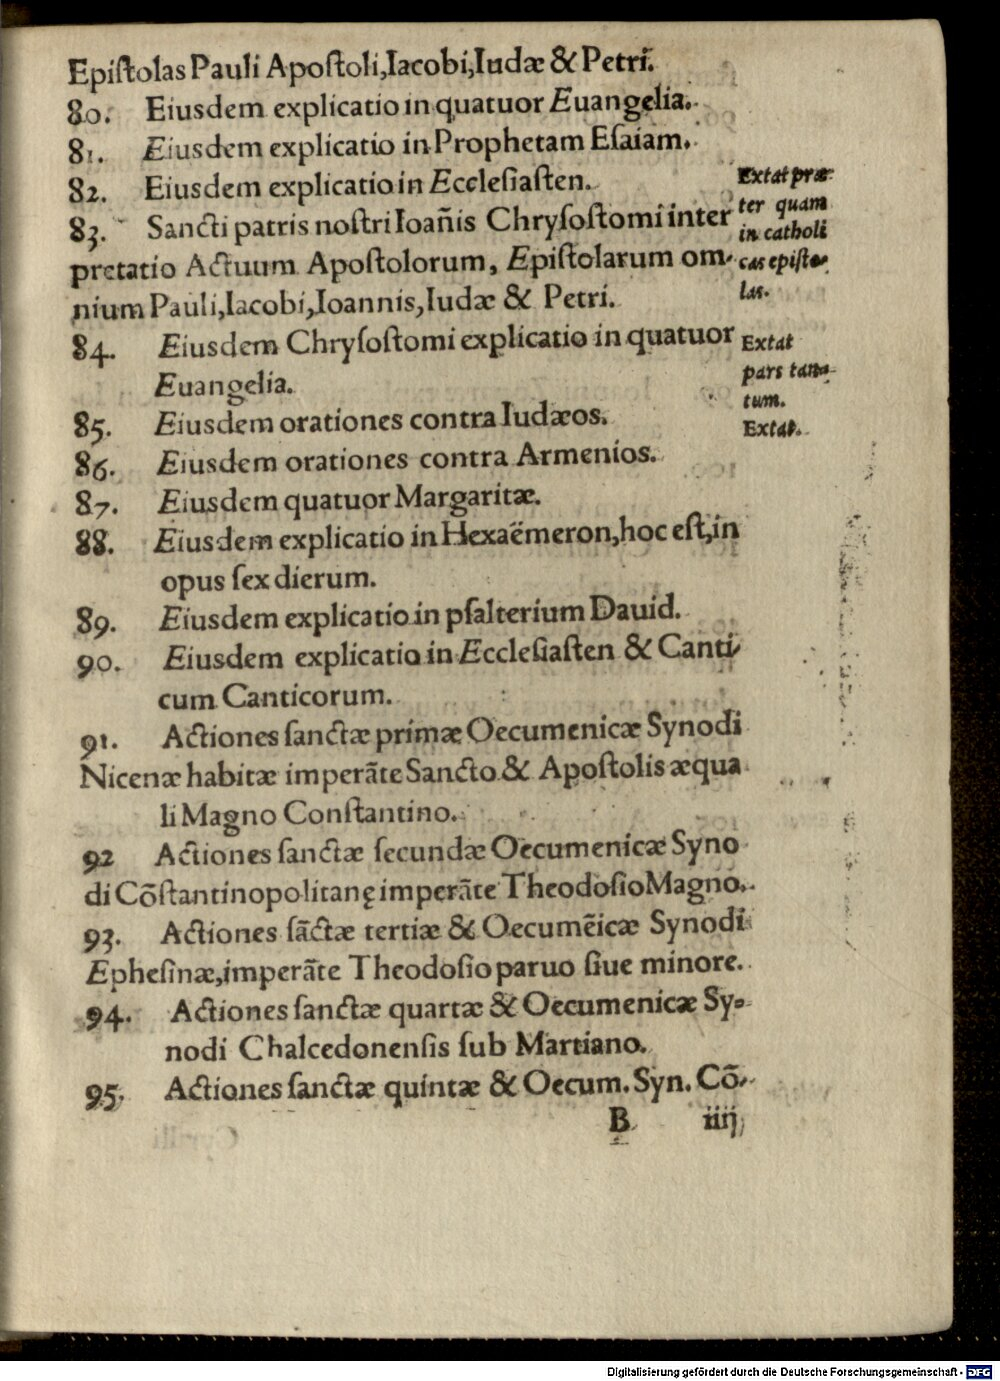 Epiſtolas Pauli Apoſtoli,Iacobi,Iudæ & Petri.
80. Eiusdem explicatio in quatuor Euangelia.
81. Eiusdem explicatio in Prophetam Eſaiam.
82. Eiusdem explicatio in Eccleſiaſten.
83. Sancti patris noſtri Ioan̄is Chryſoſtomi inter
pretatio Actuum Apoſtolorum, Epiſtolarum om-
nium Pauli,Iacobi,Ioannis,Iudæ & Petri.
Extat præ-
ter quam
in catholi
cas epiſto-
las.
84. Eiusdem Chryſoſtomi explicatio in quatuor
Euangelia.
Extat
pars tan-
tum.
85. Eiusdem orationes contra Iudæos.
Extat.
86. Eiusdem orationes contra Armenios.
87. Eiusdem quatuor Margaritæ.
88. Eiusdem explicatio in Hexaëmeron,hoc eſt,in
opus ſex dierum.
89. Eiusdem explicatio in pſalterium Dauid.
90. Eiusdem explicatio in Eccleſiaſten & Canti-
cum Canticorum.
91. Actiones ſanctæ primæ Oecumenicæ Synodi
Nicenæ habitæ imperāte Sancto & Apoſtolis æqua
li Magno Conſtantino.
92 Actiones ſanctæ ſecundæ Oecumenicæ Syno
di Cōſtantinopolitanę imperāte Theodoſio Magno.
93. Actiones ſāctæ tertiæ & Oecumēicæ Synodi
Epheſinæ,imperāte Theodoſio paruo ſiue minore.
94. Actiones ſanctæ quartæ & Oecumenicæ Sy-
nodi Chalcedonenſis ſub Martiano.
95. Actiones ſanctæ quintæ & Oecum. Syn. Cō-
B iiij
Digitalisierung gefördert durch die Deutsche Forschungsgemeinschaft - DFG